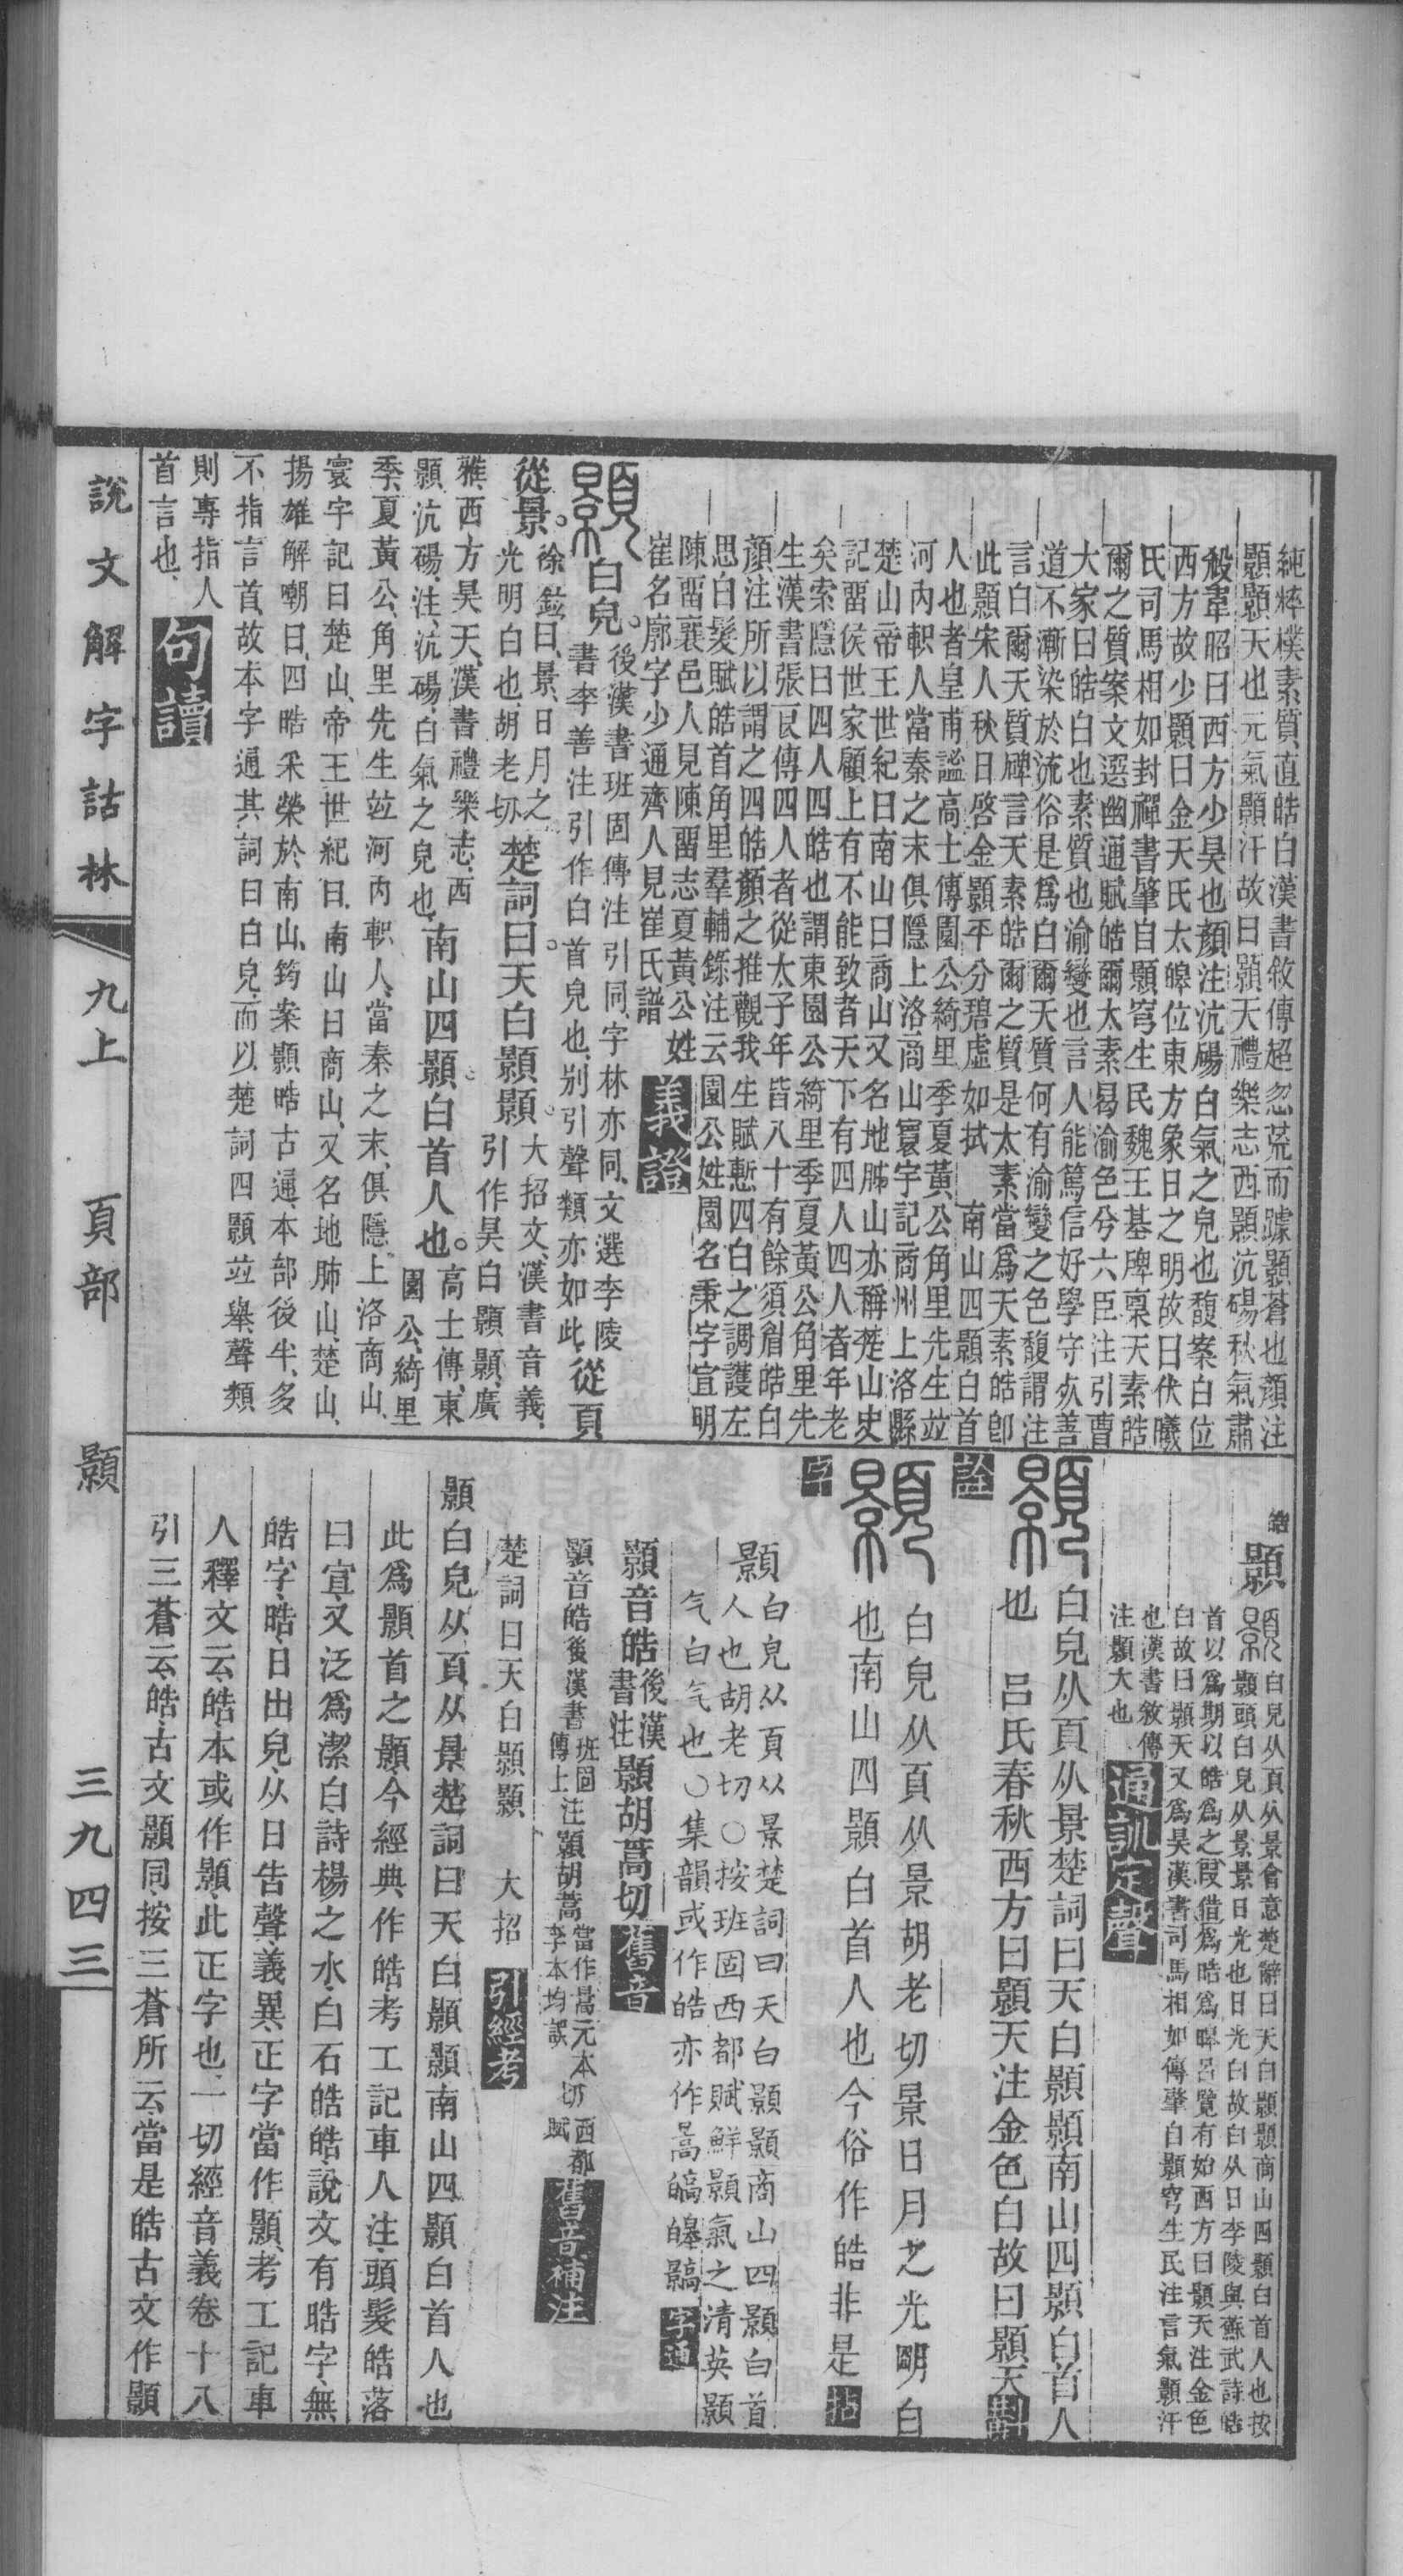 純粹樸素質直皓白漢書敘傳超忽荒而躆顥蒼也顏注
顥顥天也元氣顥汗故曰顥天禮樂志西顥沆碭秋氣肅
殺韋昭曰西方少昊也顏注沆碭白氣之皃也馥案白位
西方故少顥曰金天氏太皞位東方象日之明故曰伏曦
氏司馬相如封禪書肇自顥穹生民魏王基碑稟天素皓
爾之質案文選幽通賦皓爾太素曷渝色兮六臣注引曹
大家曰皓白也素質也渝變也言人能篤信好學守死善
道不漸染於流俗是爲白爾天質何有渝變之色馥謂注
言白爾天質碑言天素皓爾之質是太素當爲天素皓卽
此顥宋人秋日啓金顥平分碧虛如拭 南山四顥白首
人也者皇甫謐高士傳園公綺里季夏黃公角里先生竝
河內軹人當秦之末俱隱上洛商山寰宇記商州上洛縣
楚山帝王世紀曰南山曰商山又名地肺山亦稱楚山史
記畱侯世家顧上有不能致者天下有四人四人者年老
矣索隱曰四人四皓也謂東園公綺里季夏黃公角里先
生漢書張良傳四人者從太子年皆八十有餘須眉皓白
顏注所以謂之四皓顏之推觀我生賦慙四白之調護左
思白髮賦皓首角里羣輔錄注云園公姓園名秉字宣明
陳畱襄邑人見陳畱志夏黃公姓
崔名廓字少通齊人見崔氏譜 義證
顥白皃。後漢書班固傳注引同、字林亦同、文選李陵
書李善注引作白首皃也、別引聲類亦如此、從頁
從景。徐鉉曰、景、日月之
光明白也、胡老切、楚詞曰。天白顥顥。大招文、漢書音義、
引作昊白顥顥、廣
雅、西方昊天、漢書禮樂志、西
顥沆碭、注、沆碭、白氣之皃也、南山四顥。白首人也。高士傳、東
園公、綺里
季、夏黃公、角里先生竝河內軹人、當秦之末、俱隱上洛商山、
寰宇記曰楚山、帝王世紀曰、南山曰商山、又名地肺山、楚山、
揚雄解嘲曰、四晧采榮於南山、筠案顥晧古通、本部後半、多
不指言首、故本字通其詞曰白皃、而以楚詞四顥竝舉、聲類
則專指人
首言也、 句讀
皓 顥顥白皃从頁从景會意楚辭曰天白顥顥商山四顥白首人也按
顥頭白皃从景景日光也日光白故白从日李陵與蘇武詩皓
首以爲期以皓爲之叚借爲晧爲皞呂覽有始西方曰顥天注金色
白故曰顥天又爲昊漢書司馬相如傳肇自顥穹生民注言氣顥汗
也漢書敘傳
注顥大也 通訓定聲
顥白皃从頁从景楚詞曰天白顥顥南山四顥白首人
也 呂氏春秋西方曰顥天注金色白故曰顥天斠
詮
顥白皃从頁从景胡老切景日月之光明白
也南山四顥白首人也今俗作皓非是拈
字
顥白皃从頁从景楚詞曰天白顥顥商山四顥白首
人也胡老切○按班固西都賦鮮顥氣之清英顥
气白气也○集韻或作皓亦作暠皜皡䫧 字通
顥音皓後漢
書注顥胡暠切 舊音
顥音皓後漢書班固
傳上注顥胡暠當作暠元本
李本均誤切西都
賦 舊音補注
楚詞曰天白顥顥 大招 引經考
顥白皃从頁、从景楚詞曰天白顥顥南山四顥白首人也
此爲顥首之顥、今經典作皓、考工記車人注、頭髮皓落
曰宣、又泛爲潔白、詩楊之水、白石皓皓、說文有晧字、無
皓字、晧、日出皃、从日告聲、義異、正字當作顥、考工記車
人釋文云、皓、本或作顥、此正字也、一切經音義卷十八
引三蒼云、皓、古文顥同、按三蒼所云、當是皓古文作顥
說文解字詁林 九上 頁部 顥 三九四三